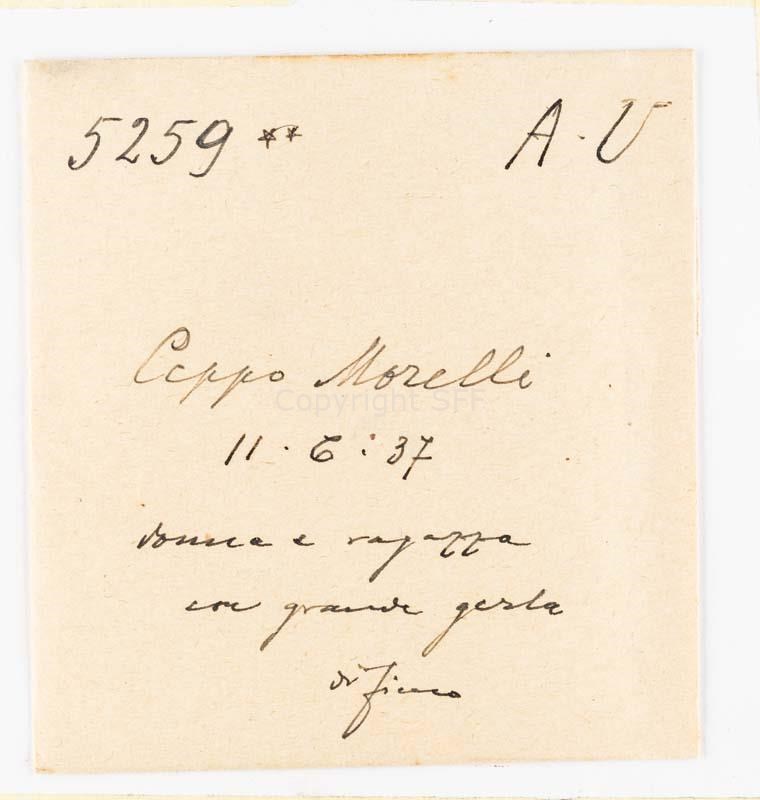 5259 ** A.V
Ceppo Morelli
Copyright SFF
11.6.37
donna e ragazza
con grande gerla
di fieno